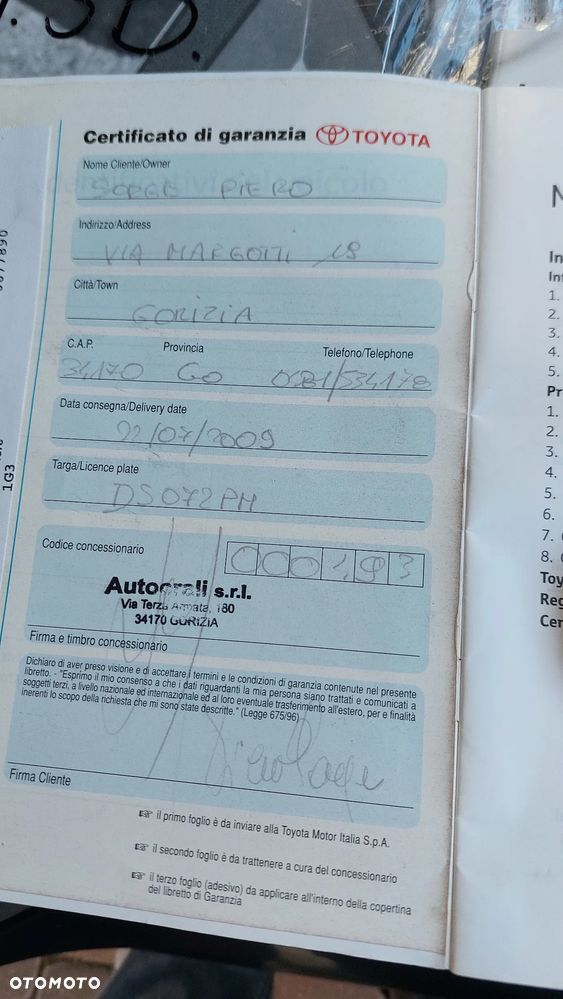 Certificato di garanzia TOYOTA
Nome Cliente/Owner
SORGE PIERO
Indirizzo/Address
VIA MARGOTTI 18
Città/Town
GORIZIA
C.A.P. Provincia Telefono/Telephone
34170 GO 0481/534178
Data consegna/Delivery date
22/07/2009
Targa/Licence plate
DS072PM
Codice concessionario
000193
Autocrali s.r.l.
Via Terza Armata, 180
34170 GORIZIA
Firma e timbro concessionario
Dichiaro di aver preso visione e di accettare i termini e le condizioni di garanzia contenute nel presente
libretto. - "Esprimo il mio consenso a che i dati riguardanti la mia persona siano trattati e comunicati a
soggetti terzi, a livello nazionale ed internazionale ed al loro eventuale trasferimento all'estero, per e finalità
inerenti lo scopo della richiesta che mi sono state descritte." (Legge 675/96)
Firma Cliente
☞ il primo foglio è da inviare alla Toyota Motor Italia S.p.A.
☞ il secondo foglio è da trattenere a cura del concessionario
☞ il terzo foglio (adesivo) da applicare all'interno della copertina
del libretto di Garanzia
1G3
In
1.
2.
3.
4.
5.
Pr
1.
2.
3.
4.
5.
6.
7.
8.
Toy
Reg
Cer
OTOMOTO